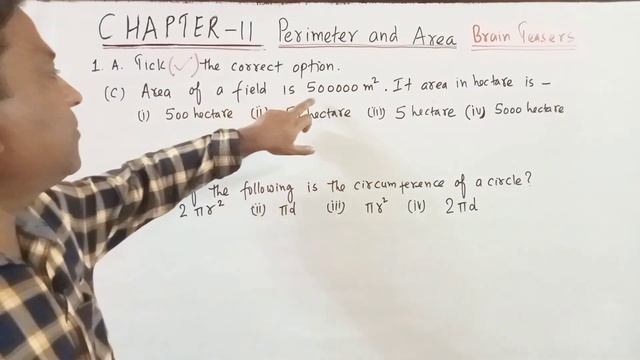 CHAPTER-11 Perimeter and Area Brain Teasers
1. A. Tick (✓) the correct option.
(C) Area of a field is 500000 m². It area in hectare is –
(i) 500 hectare (ii) hectare (iii) 5 hectare (iv) 5000 hectare
the following is the circumference of a circle?
2πr² (ii) πd (iii) πr² (iv) 2πd